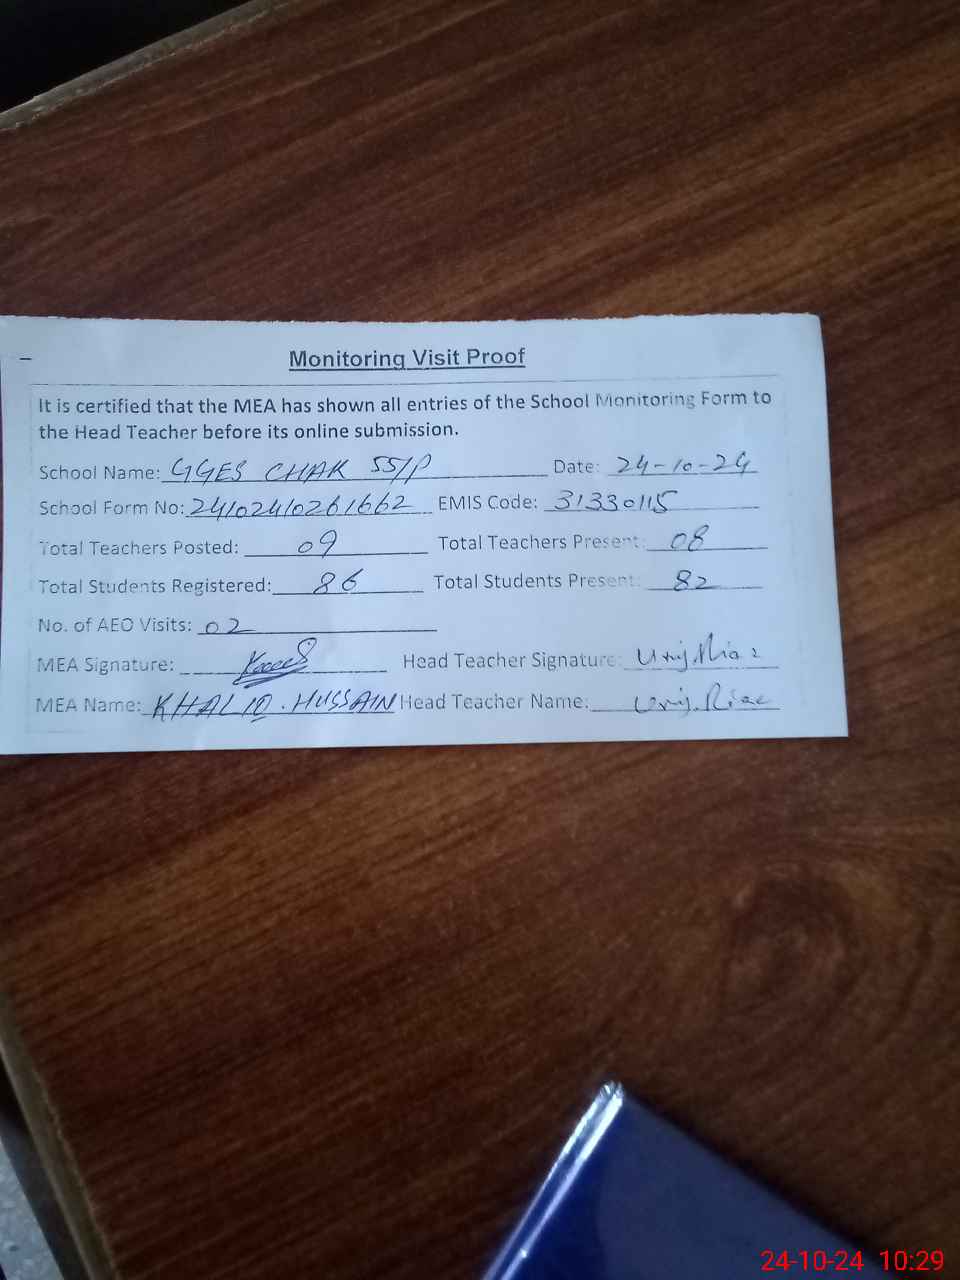 Monitoring Visit Proof
It is certified that the MEA has shown all entries of the School Monitoring Form to
the Head Teacher before its online submission.
School Name: GGES CHAK 55/P Date: 24-10-24
School Form No: 24102410261662 EMIS Code: 31330115
Total Teachers Posted: 09 Total Teachers Present: 08
Total Students Registered: 86 Total Students Present: 82
No. of AEO Visits: 02
MEA Signature: Head Teacher Signature:
MEA Name: KHALIQ. HUSSAIN Head Teacher Name:
24-10-24 10:29